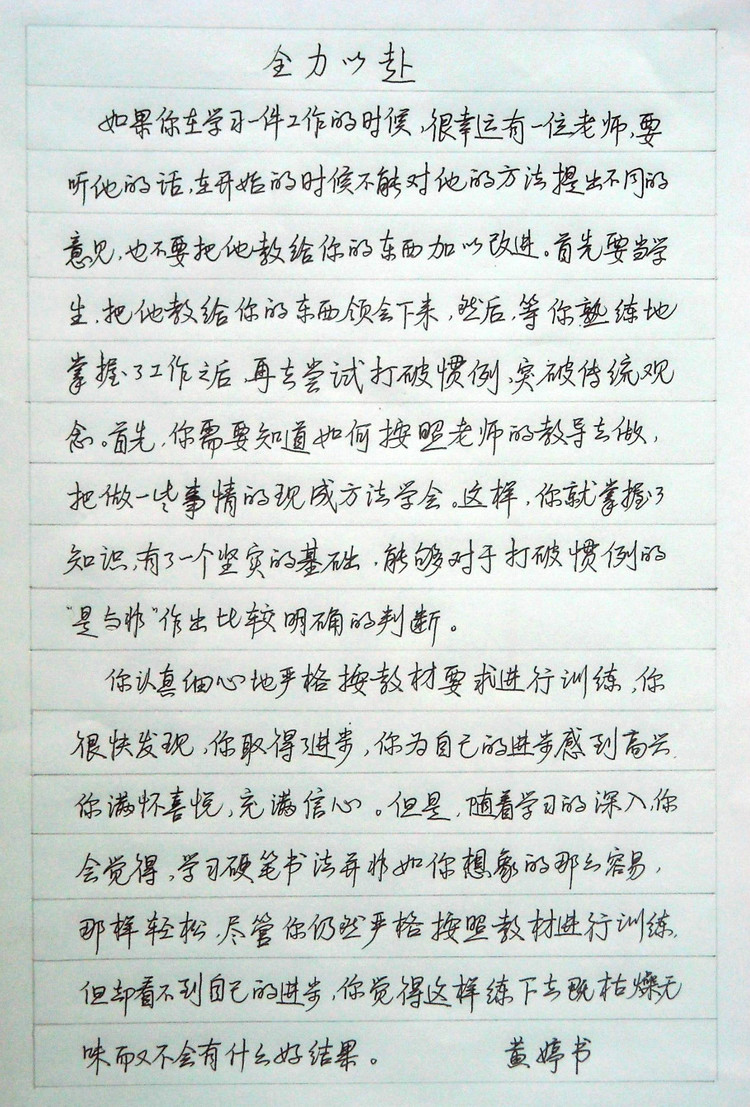 全力以赴
如果你在学习一件工作的时候,很幸运有一位老师,要
听他的话,在开始的时候不能对他的方法提出不同的
意见,也不要把他教给你的东西加以改进。首先要当学
生,把他教给你的东西领会下来,然后,等你熟练地
掌握了工作之后,再去尝试打破惯例,突破传统观
念。首先,你需要知道如何按照老师的教导去做,
把做一些事情的现成方法学会。这样,你就掌握了
知识,有了一个坚实的基础,能够对于打破惯例的
“是与非”作出比较明确的判断。
你认真细心地严格按教材要求进行训练,你
很快发现,你取得了进步,你为自己的进步感到高兴,
你满怀喜悦,充满信心。但是,随着学习的深入,你
会觉得,学习硬笔书法并非如你想象的那么容易,
那样轻松,尽管你仍然严格按照教材进行训练,
但却看不到自己的进步,你觉得这样练下去既枯燥无
味而又不会有什么好结果。 黄婷书